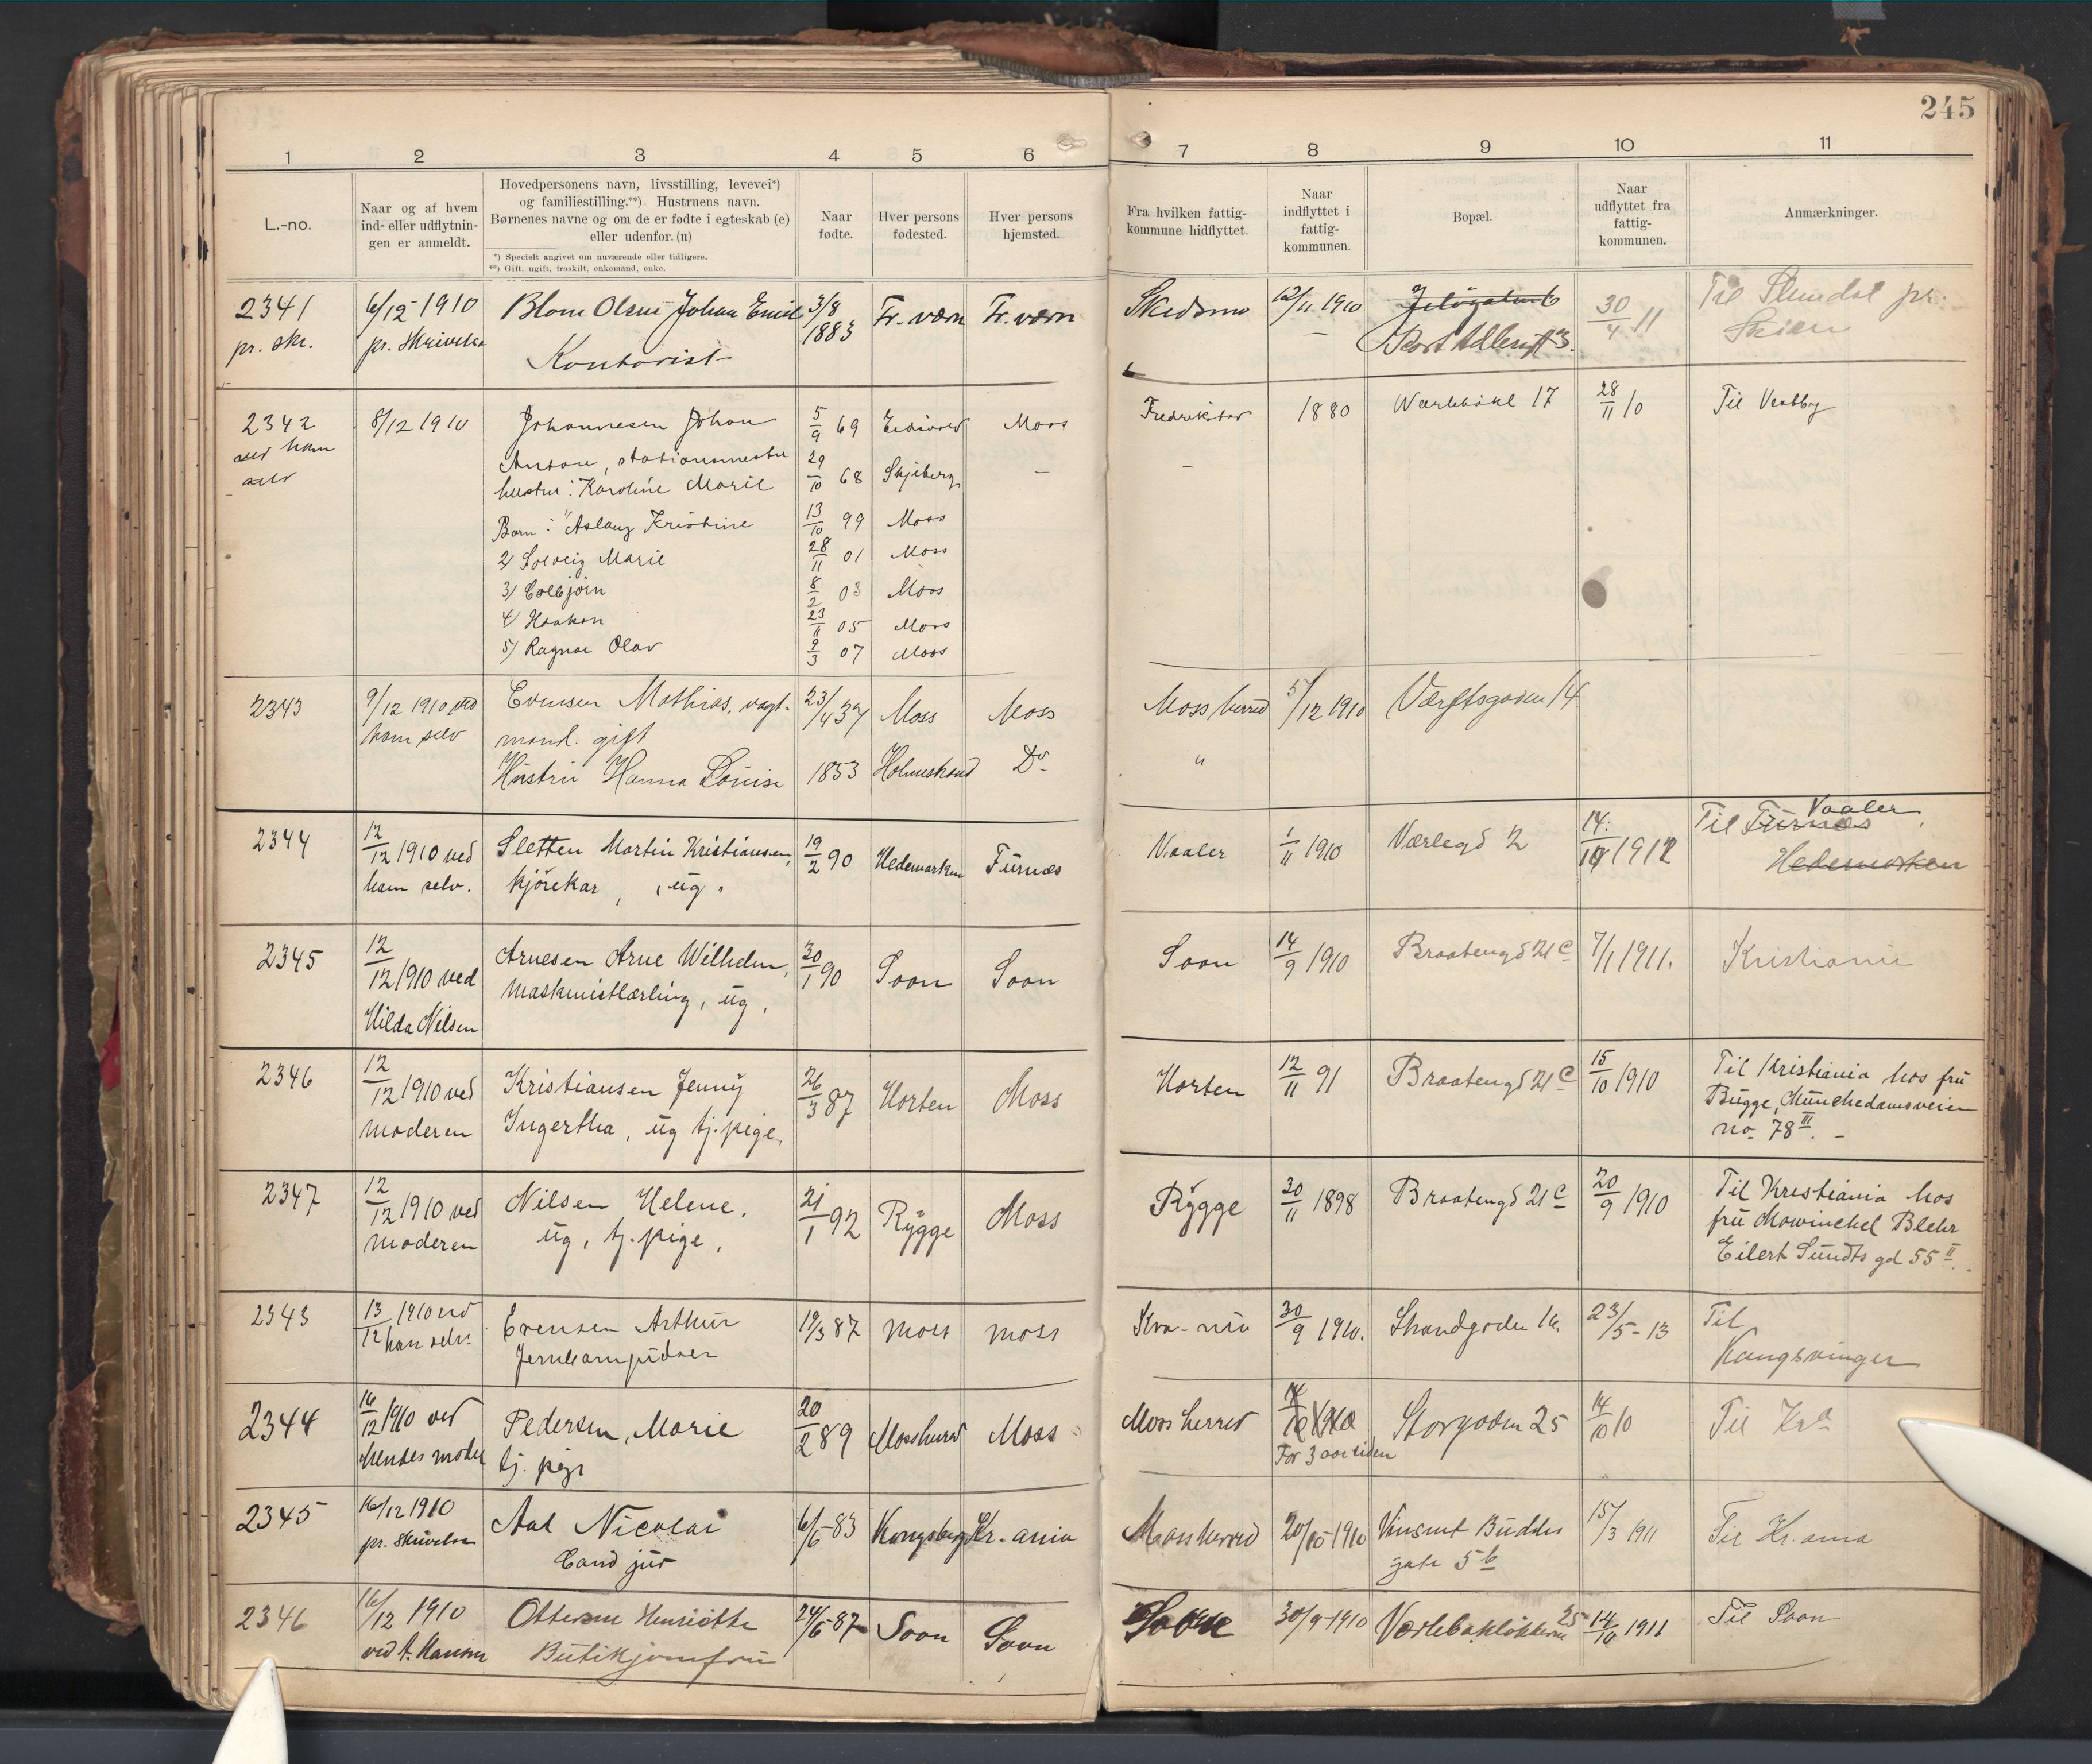 245
1 2 3 4 5 6 7 8 9 10 11
L.-no.
Naar og af hvem
ind- eller udflytnin-
gen er anmeldt.
Hovedpersonens navn, livsstilling, levevei*)
og familiestilling.**) Hustruens navn.
Børnenes navne og om de er fødte i egteskab (e)
eller udenfor. (u)
*) Specielt angivet om nuværende eller tidligere.
**) Gift, ugift, fraskilt, enkemand, enke.
Naar
fødte.
Hver persons
fødested.
Hver persons
hjemsted.
Fra hvilken fattig-
kommune hidflyttet.
Naar
indflyttet i
fattig-
kommunen.
Bopæl.
Naar
udflyttet fra
fattig-
kommunen.
Anmærkninger.
2341 6/12 1910 Blom Olsen Johan Emil 3/8 Fr. værn Fr. værn Skedsmo 12/11 1910 30/4 11 Til
pr. skr. pr. Skrivelse 1883 Skien
Kontorist
2342 8/12 1910 Johannesen Johan 5/9 69 Eidsvold Moss Fredrikstad 1880 17 28/11 10 Til Vestby
ved ham Anton, stationsmester 29/10 68 Skjeberg –
selv hustru: Karoline Marie
Børn: 1/ Aslaug Kristine 13/10 99 Moss
2/ Solveig Marie 28/11 01 Moss
3/ Colbjørn 8/2 03 Moss
4/ Haakon 23/11 05 Moss
5/ Ragnar Olav 2/3 07 Moss
2343 9/12 1910 ved Evensen Mathias, vagt- 23/4 37 Moss Moss Moss herred 5/12 1910 Værftsgaden 14
ham selv mand. gift
Hustru Hanna Louise 1853 Holmestrand Do "
2344 12/12 1910 ved Sletten Martin Kristiansen, 19/2 90 Hedemarken Furnæs Vaaler 1/11 1910 Værlegd 2 14/10 1912 Til Furnæs Vaaler
ham selv. kjørekar, ug. Hedemarken
2345 12/12 1910 ved Arnesen Arne Wilhelm, 30/1 90 Soon Soon Soon 14/9 1910 Braatengd 21c 7/1 1911. Kristiania
Hilda Nilsen Maskinistlærling, ug.
2346 12/12 1910 ved Kristiansen Jenny 26/3 87 Horten Moss Horten 12/11 91 Braatengd 21c 15/10 1910 Til Kristiania hos fru
moderen Ingertha, ug tj. pige, Bugge, Munchedamsveien
no. 78 III. –
2347 12/12 1910 ved Nilsen Helene, 21/1 92 Rygge Moss Rygge 30/11 1898 Braatengd 21c 20/9 1910 Til Kristiania hos
moderen ug, tj. pige, fru Mowinckel Blehr
Eilert Sundts gd 55 II.
2343 13/12 1910 ved Evensen Arthur 19/3 87 Moss Moss Kra-nia 30/9 1910. Strandgaden 16. 23/5-13 Til
han selv. Kongsvinger
2344 16/12 1910 ved Pedersen, Marie 20/2 89 Mossherred Moss Moss herred Storgaden 25 14/10 10 Til Kra
hendes moder tj. pige For 3 aar siden
2345 16/12 1910 Aal Nicolai 6/5 83 Kongsberg Kr. ania Moss herred 20/10 1910 Vincent Buddes 15/3 1911 Til Kr. ania
pr. Skrivelse Cand jur gate 5b
2346 16/12 1910 Ottersen Henriette 24/5 87 Soon Soon Soon 30/9 1910 Værlebakløkken 25 14/10 1911 Til Soon
ved A. Hansen Butikjomfru